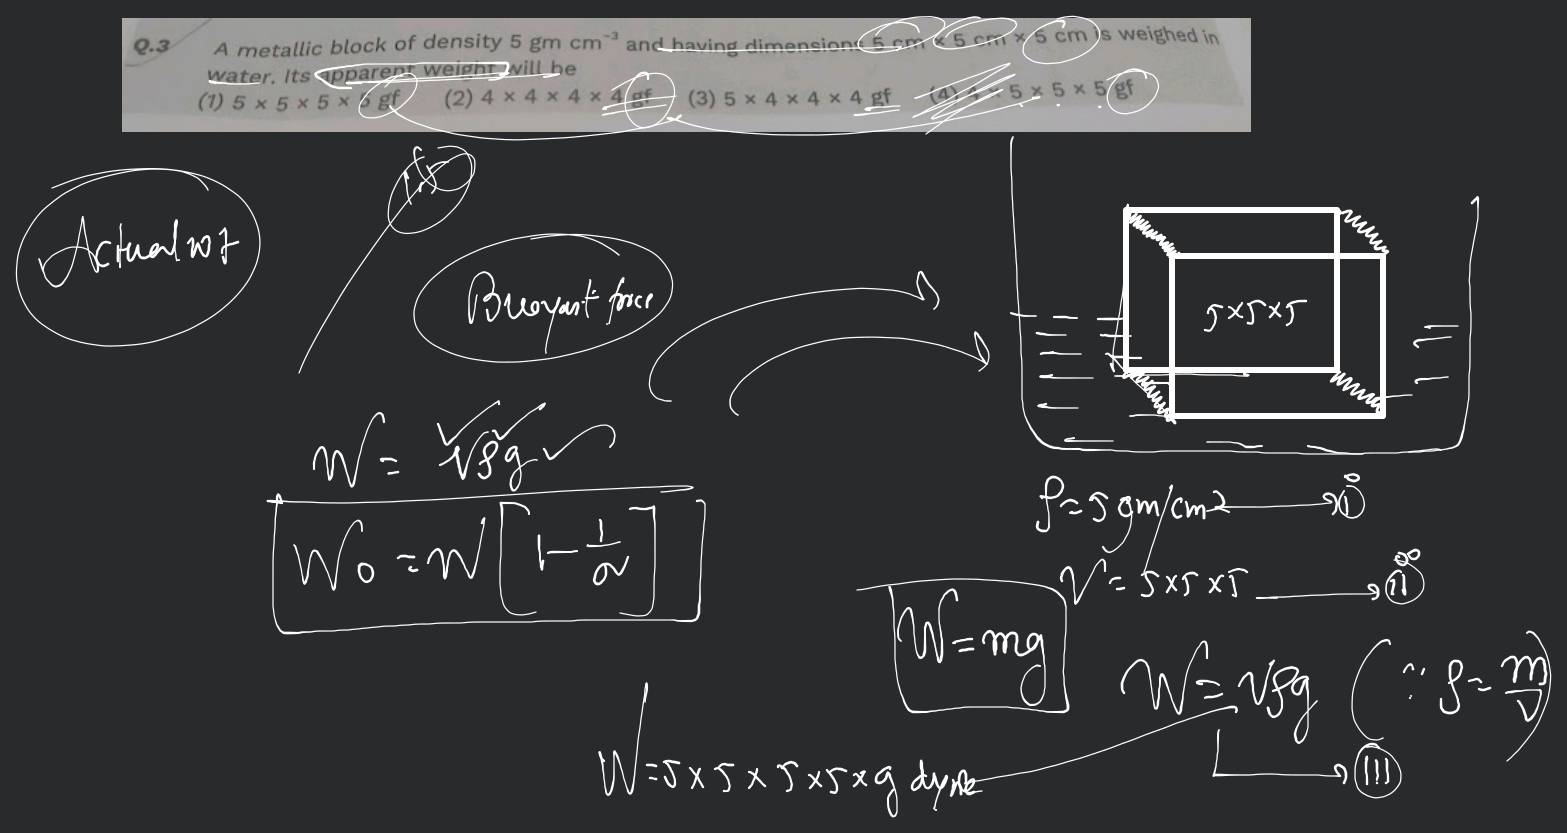 Q.3 A metallic block of density 5 gm cm⁻³ and having dimensions 5 cm × 5 cm × 5 cm is weighed in
water. Its apparent weight will be
(1) 5 × 5 × 5 × 5 gf (2) 4 × 4 × 4 × 4 gf (3) 5 × 4 × 4 × 4 gf (4) 4 × 5 × 5 × 5 gf
Actual wt
Buoyant force
5×5×5
W = Vρg
W₀ = W [1 - 1/σ]
ρ = 5 gm/cm² → (i)
V = 5×5×5 → (ii)
W = mg
W = Vρg (∵ ρ = m/V)
→ (III)
W = 5 × 5 × 5 × 5 × g dyne